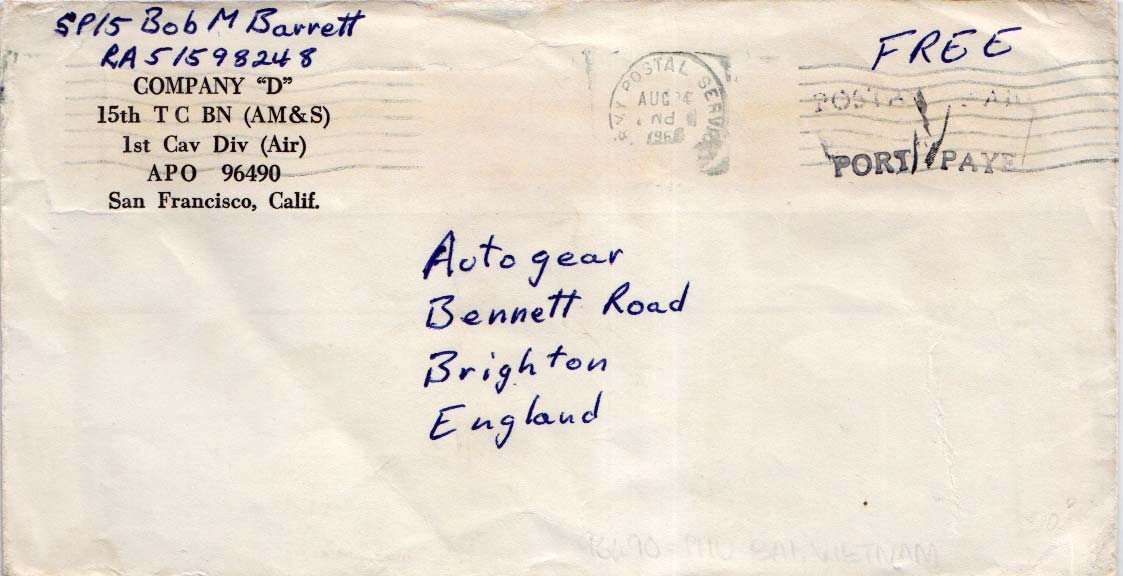 SP/5 Bob M Barrett
RA51598248
COMPANY "D"
15th T C BN (AM&S)
1st Cav Div (Air)
APO 96490
San Francisco, Calif.
POSTAL SERVICE
AUG
PM
FREE
PORT PAYE
Autogear
Bennett Road
Brighton
England
96490 PHU BAI VIETNAM